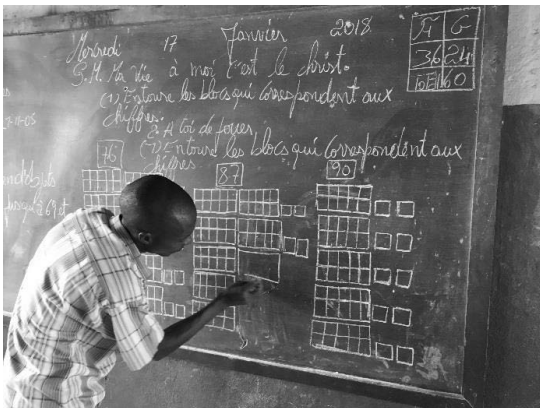 Mercredi 17 Janvier 2018
S.M. Ma vie à moi c'est le christ.
(1) Entoure les blocs qui correspondent aux
chiffres.
2. A toi de jouer
(1) Entoure les blocs qui correspondent aux
chiffres
76
87
90
F G
36 24
60